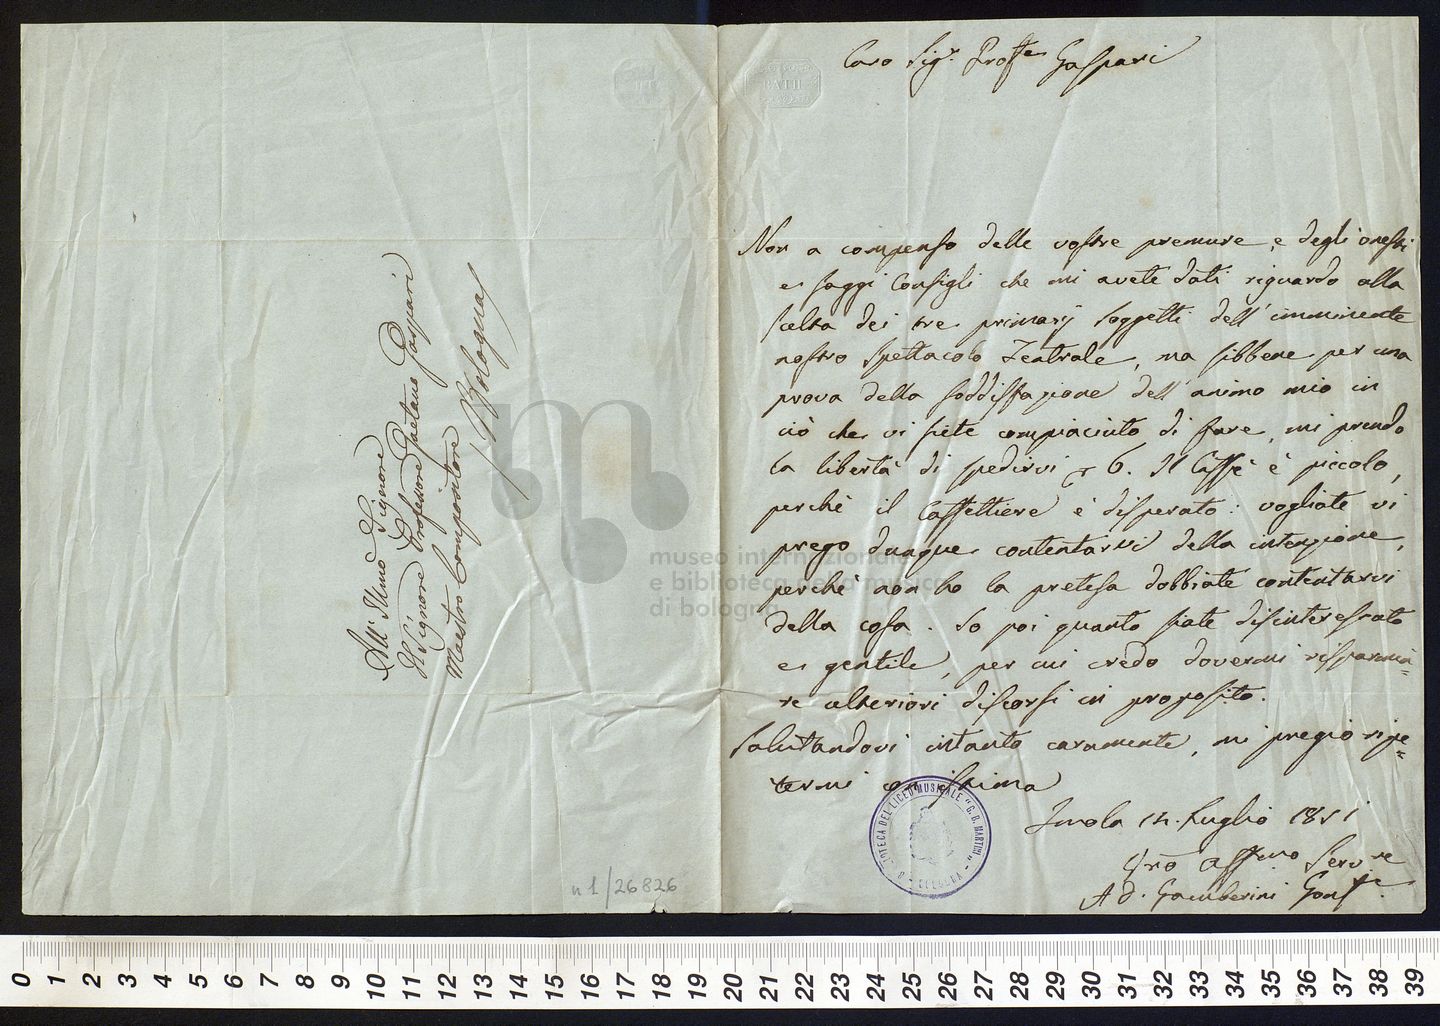 All' Illmo Signore
Il Signore Professore Gaetano Gaspari
Maestro Compositore
Bologna
Caro Sigr. Profre Gaspari
BATH
Non a compenso delle vostre premure, e degli onesti
e saggi Consigli che mi avete dati riguardo alla
scelta dei tre primarj soggetti dell' imminente
nostro spettacolo Teatrale, ma sibbene per una
prova della soddisfazione dell' animo mio in
ciò che vi siete compiaciuto di fare, mi prendo
la libertà di spedirvi 6. Il Caffè è piccolo,
perchè il Caffettiere è disperato: vogliate vi
prego dunque contentarvi della intenzione,
perchè non ho la pretesa dobbiate contentarvi
della cosa. So poi quanto siate disinteressato
e gentile, per cui credo dovermi risparmia=
re ulteriori discorsi in proposito.
Salutandovi intanto caramente, mi pregio ripe=
termi con stima
Imola 14. Luglio 1851
Vro Affmo Servre
Ad. Gamberini Gonfre
BIBLIOTECA DEL LICEO MUSICALE "G. B. MARTINI" - BOLOGNA
n 1/26826
museo internazionale
e biblioteca della musica
di bologna
0 1 2 3 4 5 6 7 8 9 10 11 12 13 14 15 16 17 18 19 20 21 22 23 24 25 26 27 28 29 30 31 32 33 34 35 36 37 38 39